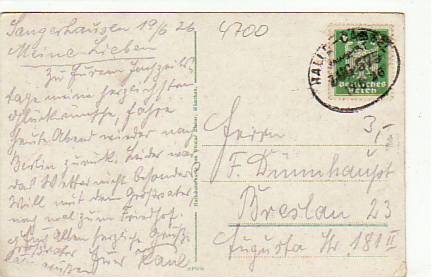 Sangerhausen 19/6 26
Meine Lieben
Zu Eurem Hochzeits
tage meine herzlichsten
Glückwünsche, fahre
heute Abend wieder nach
Berlin zurück. Leider war
das Wetter nicht besonders
Will mit dem Großvater
noch mal zum Friedhof.
Euch Allen herzliche Grüße
Großvater
Euer Paul
4700
HALLE CASSEL
Deutsches
Reich
3,-
Herrn
F. Dummhaupt
Breslau 23
Augusta Str. 181 II